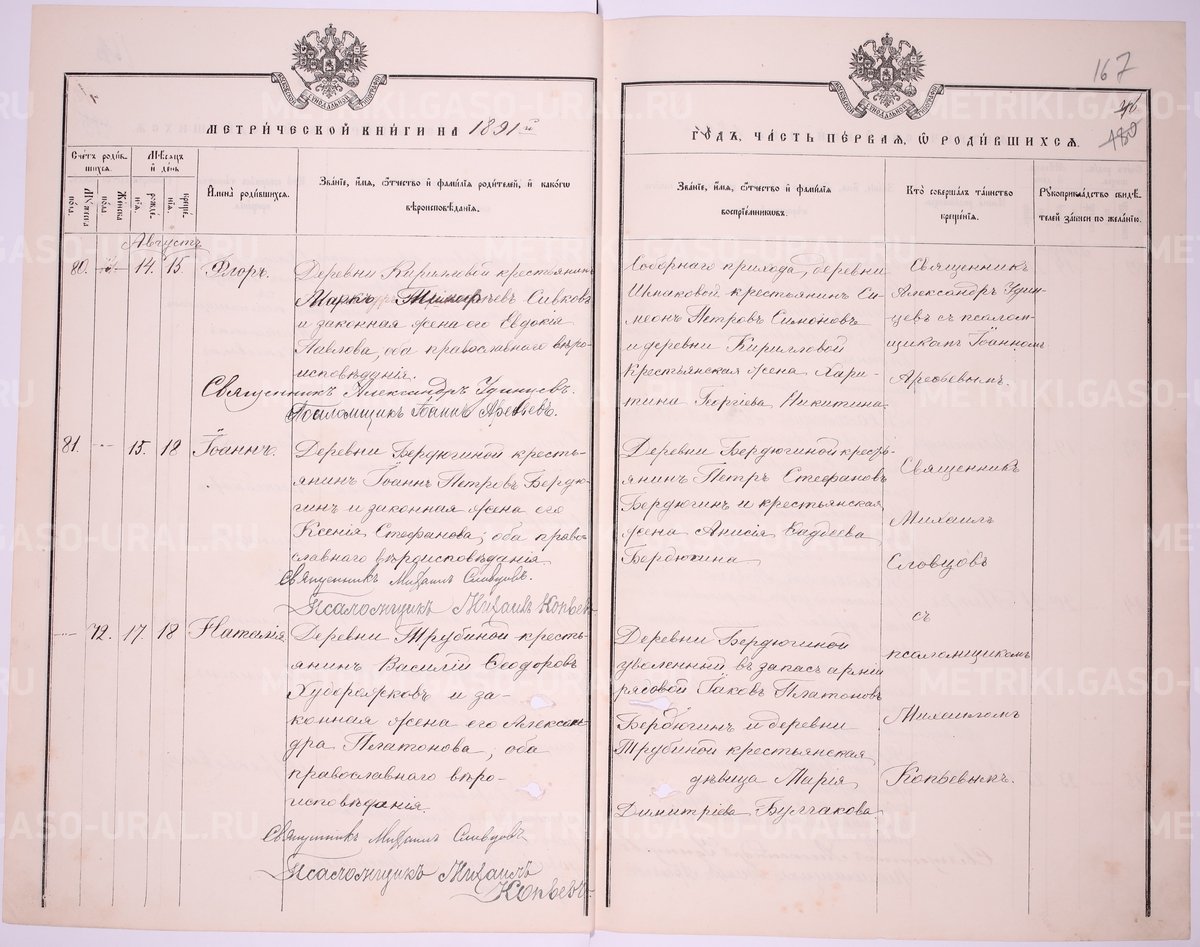 167
46
180
МЕТРИ́ЧЕСКОЙ КНИ́ГИ НА 1891й
ГО́ДЪ, ЧА́СТЬ ПЕ́РВАЯ, Ѡ РОДИ́ВШИХСѦ.
Счетъ роди́вшихсѧ.
Мꙋжеска пола.
Женска пола
Мѣ́сѧцъ и́ де́нь
рожде́нїѧ.
креще́нїѧ.
И҆мена̀ роди́вшихсѧ.
Зва́нїе, и҆́мѧ, ѻ҆́тчество и҆ фами́лїѧ роди́телей, и҆ како́гѡ
вѣроисповѣ́данїѧ.
Зва́нїе, и҆́мѧ, ѻ҆́тчество и҆ фами́лїѧ
воспрїе́мникѡвъ.
Кто̀ соверша́лъ та́инство
креще́нїѧ.
Рꙋкоприкла́дство свидѣ́телей за́писи по жела́нїю.
Августъ
80.
14. 15.
Флоръ.
Деревни Кирилловой крестьянинъ
Маркъ Тимофѣевъ Сивковъ
и законная жена его Евдокія
Павлова, оба православнаго вѣро-
исповѣданія.
Священникъ Александръ Удинцевъ.
Псаломщикъ Іоаннъ Арефьевъ.
Соборнаго прихода, деревни
Шмаковой крестьянинъ Си-
меонъ Петровъ Симоновъ
и деревни Кирилловой
крестьянская жена Хари-
тина Георгіева Никитина.
Священникъ
Александръ Удин-
цевъ съ псалом-
щикомъ Іоанномъ
Арефьевымъ.
81. 15. 18
Іоаннъ.
Деревни Бердюгиной кресть-
янинъ Іоаннъ Петровъ Бердю-
гинъ и законная жена его
Ксенія Стефанова, оба право-
славнаго вѣроисповѣданія
Священникъ Михаилъ Словцовъ.
Псаломщикъ Михаилъ Копьевъ
Деревни Бердюгиной кресть-
янинъ Петръ Стефановъ
Бердюгинъ и крестьянская
жена Анисія Фадеева
Бердюгина
Священникъ
Михаилъ
Словцовъ
съ
псаломщикомъ
Михаиломъ
Копьевымъ.
72. 17. 18
Наталія
Деревни Трубиной кресть-
янинъ Василій Ѳеодоровъ
Худорожковъ и за-
конная жена его Алексан-
дра Платонова, оба
православнаго вѣро-
исповѣданія.
Священникъ Михаилъ Словцовъ
Псаломщикъ Михаилъ
Копьевъ.
Деревни Бердюгиной
уволенный въ запасъ арміи
рядовой Іаковъ Платоновъ
Бердюгинъ и деревни
Трубиной крестьянская
дѣвица Марія
Димитріева Булчакова
METRIKI.GASO-URAL.RU